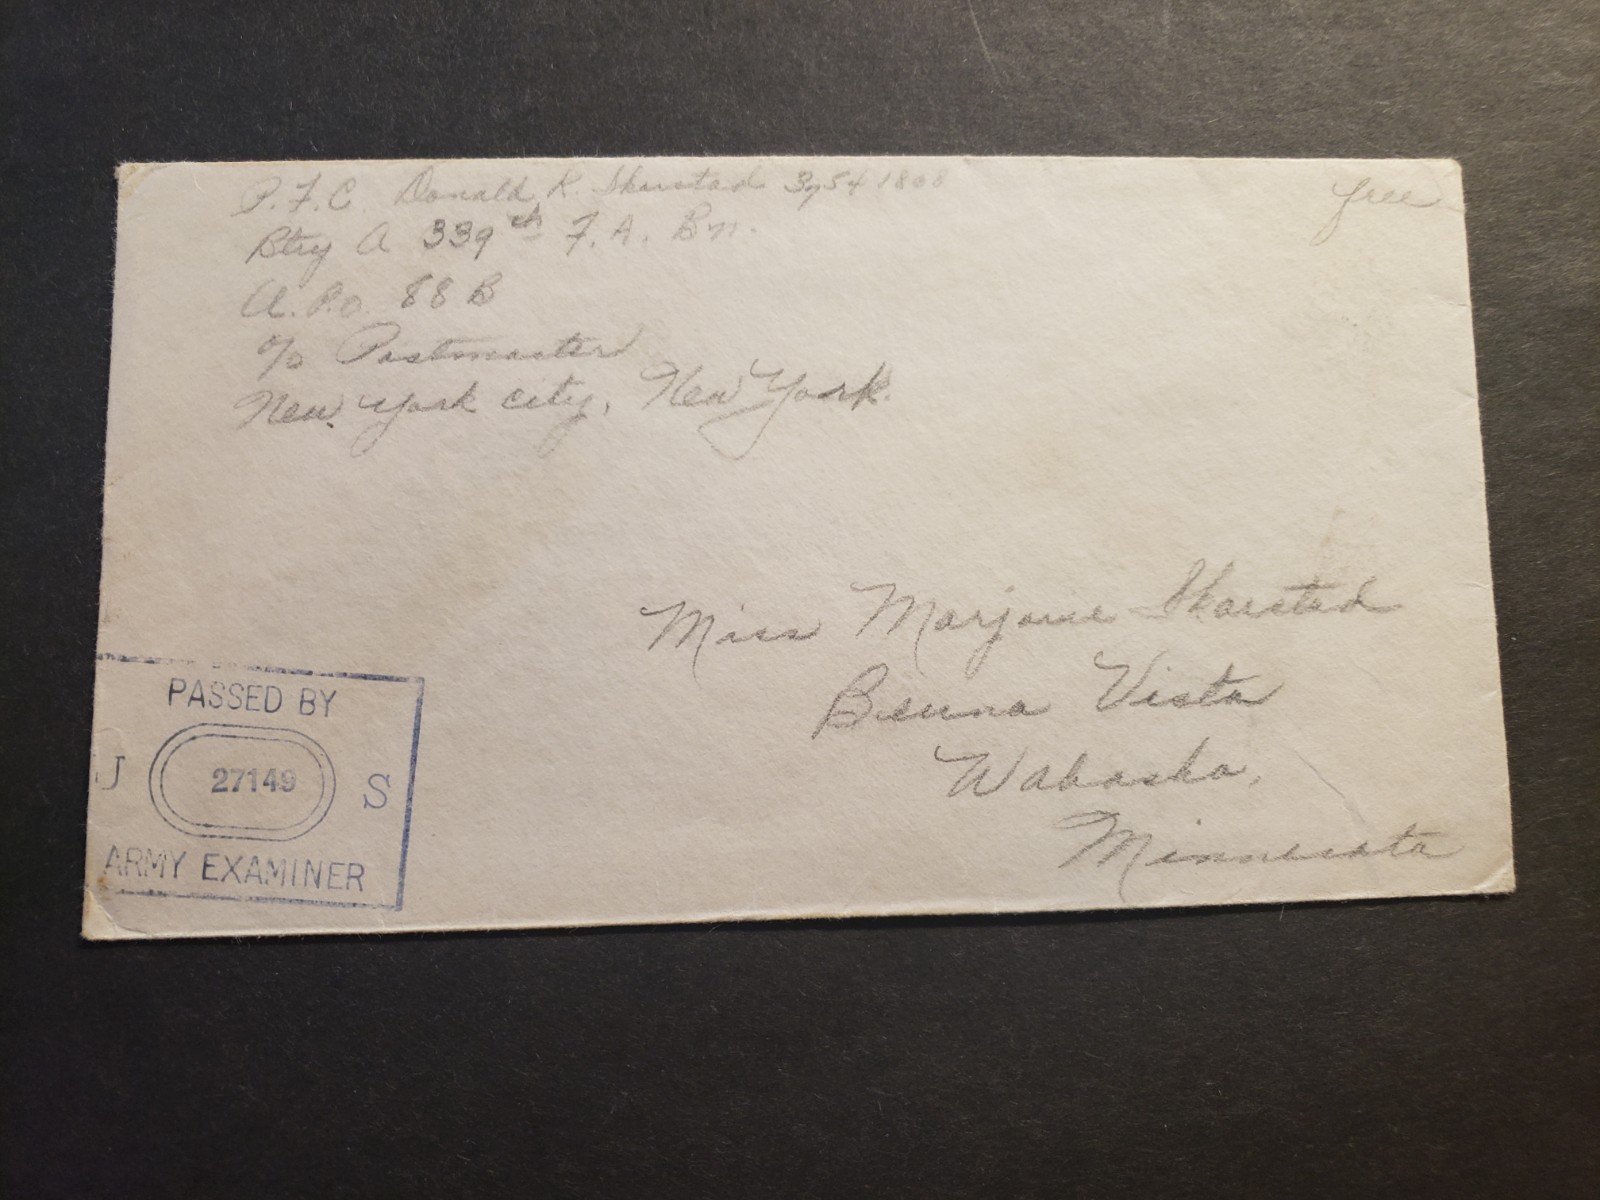 P.F.C. Donald R. Skarstad 37541808
Free
Btry A 339th F.A. Bn.
A.P.O. 88 B
c/o Postmaster
New York City, New York.
Miss Marjorie Skarstad
Buena Vista
Wabasha,
Minnesota
PASSED BY
U 27149 S
ARMY EXAMINER